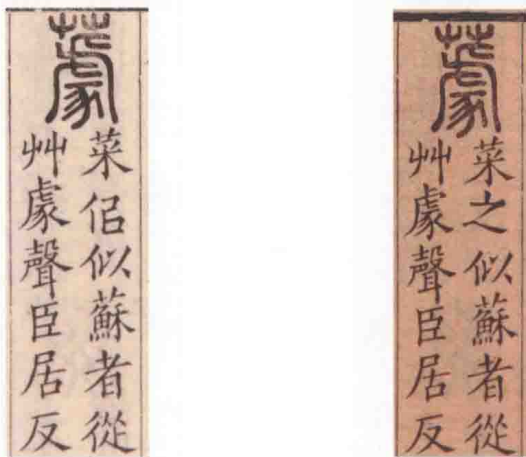 菜佀似蘇者從
艸豦聲臣居反
菜之似蘇者從
艸豦聲臣居反